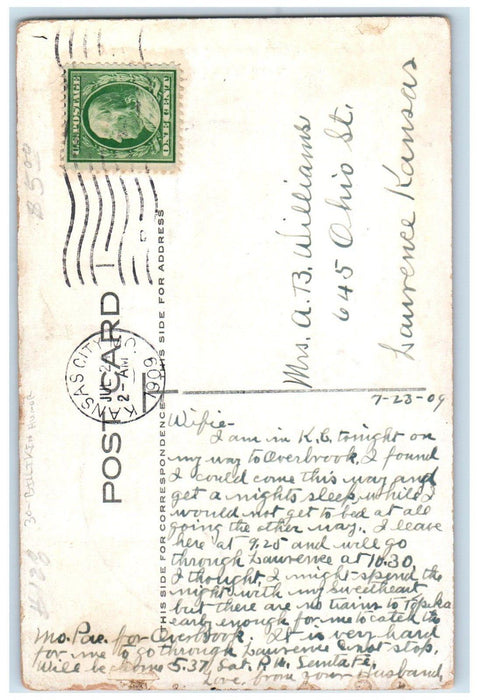 U.S. POSTAGE
ONE CENT
KANSAS CITY
2 AM
1909
POST CARD
THIS SIDE FOR CORRESPONDENCE
THIS SIDE FOR ADDRESS
Mrs. A. B. Williams
645 Ohio St.
Lawrence Kansas
7-23-09
Wifie-
I am in K.C. tonight on
my way to Overbrook. I found
I could come this way and
get a nights sleep while I
would not get to bed at all
going the other way. I leave
here at 9.25 and will go
through Lawrence at 10.30.
I thought I might spend the
night with my sweetheart
but there are no trains to Topeka
early enough for me to catch the
Mo. Pac. for Overbrook. It is very hard
for me to go through Lawrence & not stop.
Will be home 5.37 Sat. P.M. Santa Fe.
Love from your Husband,